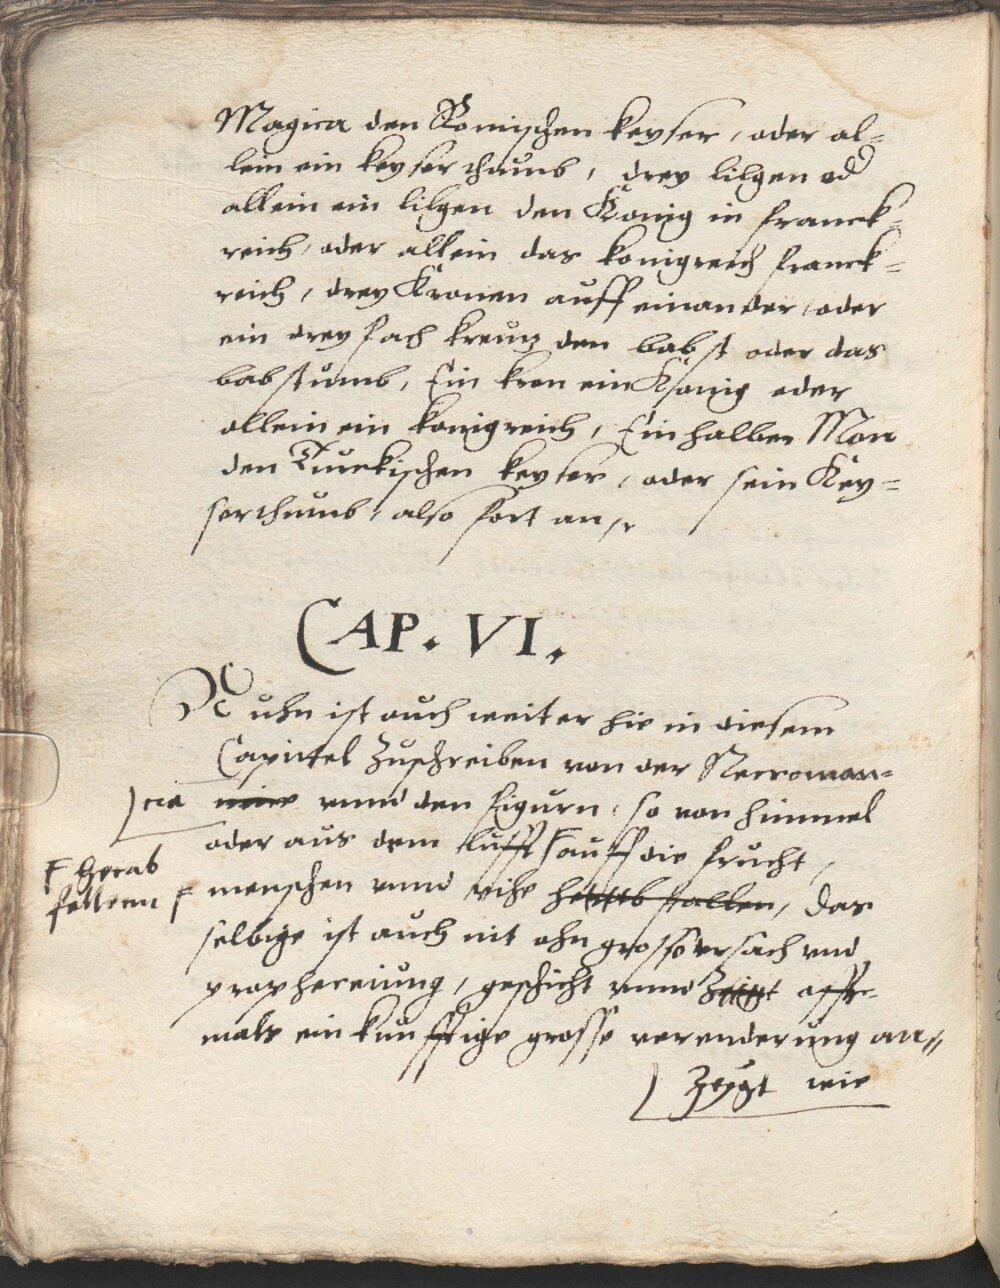 Magica den Römischen keyser, oder al=
lein ein keyserthumb, drey lilgen od
allein ein lilgen den König in franck=
reich, oder allein das königreich franck=
reich, drey Kronen auff einander, oder
ein dreyfach kreutz den babst oder das
babstumb, Ein kron ein König oder
allein ein königreich, Ein halben Mon
den Turckischen keyser, oder sein Key=
serthumb, also fort an,
CAP. VI.
Nuhn ist auch weiter hie in diesem
Capittel zuschreiben von der Necroman=
cia vnnd den figurn, so von himmel
oder aus dem lufft F auff die frucht,
F herab
fallenn F
menschen vnnd vihe herab fallen, das
selbige ist auch nit ohn grosse vrsach vnd
propheceiung, geschicht vnnd zeigt offte=
mals ein kunfftige grosse verenderung an,,
zeygt wie